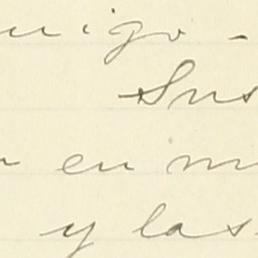 migo -
Sus
en m
y las